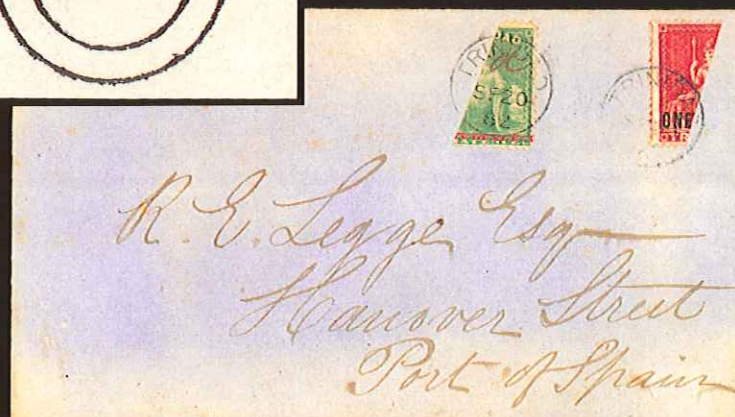 TRINIDAD
SE 20
ONE
R. E. Legge Esq
Hanover Street
Port of Spain